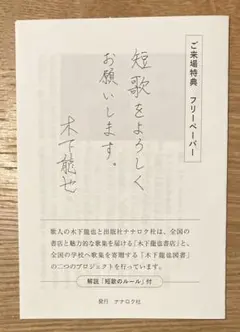 ご来場特典　フリーペーパー
短歌をよろしく
お願いします。
木下龍也
歌人の木下龍也と出版社ナナロク社は、全国の
書店と魅力的な歌集を届ける「木下龍也書店」と、
全国の学校へ歌集を寄贈する「木下龍也図書」
の二つのプロジェクトを行っています。
解説「短歌のルール」付
発行　ナナロク社